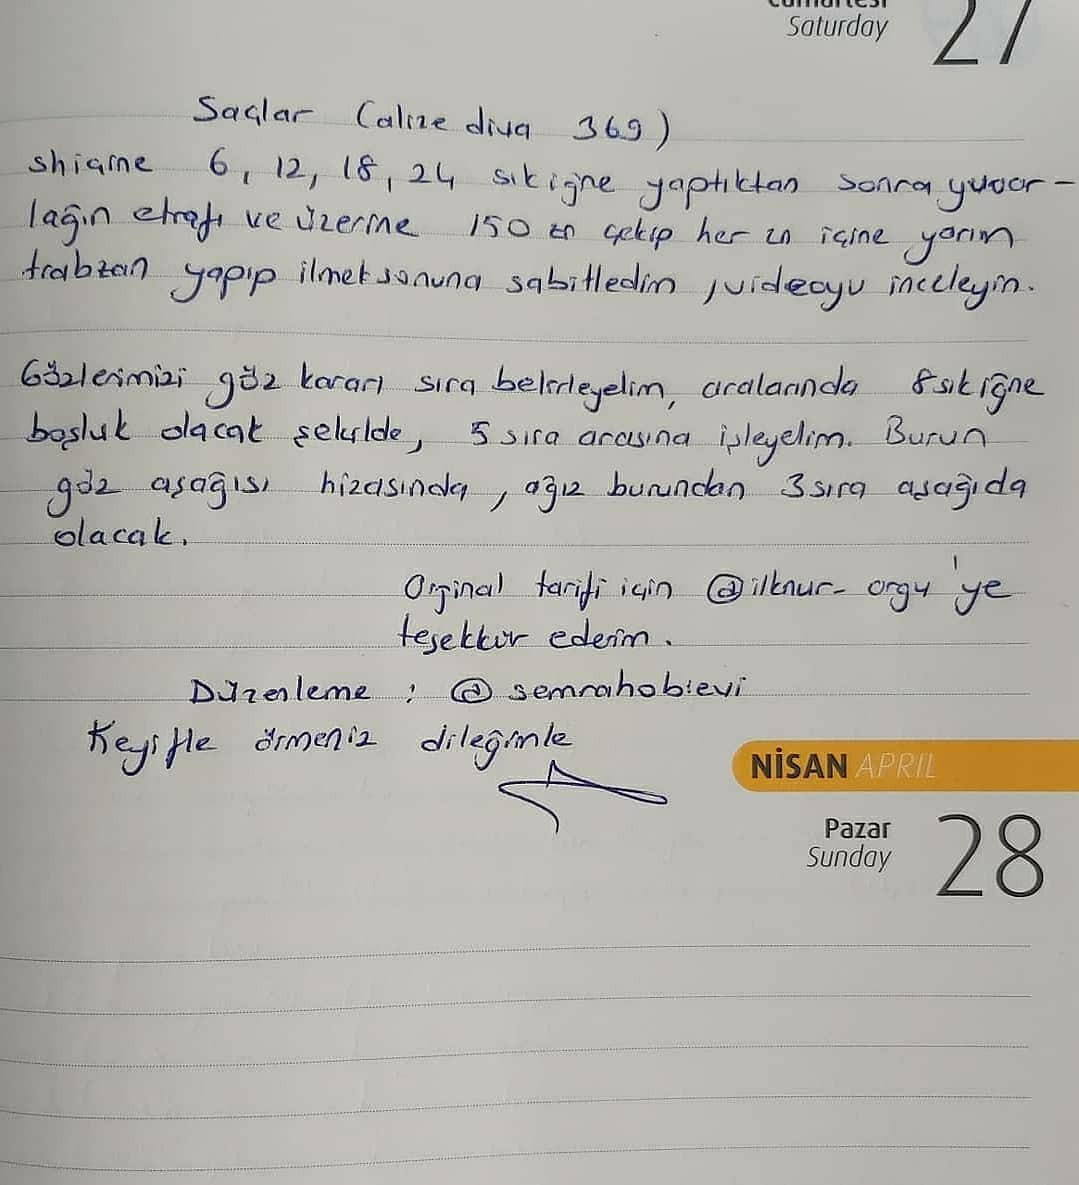 Saturday 27
Saçlar (alize diva 369)
6, 12, 18, 24 sıkiğne yaptıktan sonra yuvar-
lağın etrafı ve üzerine 150 zn çekip her zn içine yarım
trabzan yapıp ilmek sonuna sabitledim, videoyu inceleyin.
Gözlerimizi göz kararı sıra belirleyelim, aralarında 8 sıkiğne
boşluk olacak şekilde, 5 sıra arasına işleyelim. Burun
göz aşağısı hizasında, ağız burundan 3 sıra aşağıda
olacak.
Orjinal tarifi için @ilknur_orgu'ye
teşekkür ederim.
Düzenleme : @semrahobievi
Keyifle örmeniz dileğimle
NİSAN APRIL
Pazar
Sunday 28